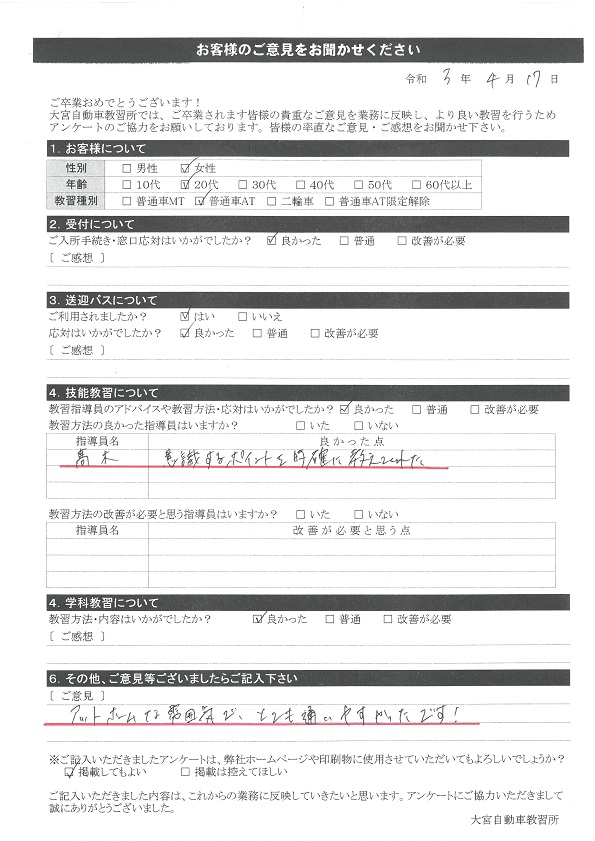 お客様のご意見をお聞かせください
令和 3 年 4 月 17 日
ご卒業おめでとうございます！
大宮自動車教習所では、ご卒業されます皆様の貴重なご意見を業務に反映し、より良い教習を行うため
アンケートのご協力をお願いしております。皆様の率直なご意見・ご感想をお聞かせ下さい。
1. お客様について
性別 □ 男性 ☑ 女性
年齢 □ 10代 ☑ 20代 □ 30代 □ 40代 □ 50代 □ 60代以上
教習種別 □ 普通車MT ☑ 普通車AT □ 二輪車 □ 普通車AT限定解除
2. 受付について
ご入所手続き・窓口応対はいかがでしたか？ ☑ 良かった □ 普通 □ 改善が必要
〔 ご感想 〕
3. 送迎バスについて
ご利用されましたか？ ☑ はい □ いいえ
応対はいかがでしたか？ ☑ 良かった □ 普通 □ 改善が必要
〔 ご感想 〕
4. 技能教習について
教習指導員のアドバイスや教習方法・応対はいかがでしたか？ ☑ 良かった □ 普通 □ 改善が必要
教習方法の良かった指導員はいますか？ □ いた □ いない
指導員名 良かった点
髙木 意識するポイントを的確に教えてくれた
教習方法の改善が必要と思う指導員はいますか？ □ いた □ いない
指導員名 改善が必要と思う点
4. 学科教習について
教習方法・内容はいかがでしたか？ ☑ 良かった □ 普通 □ 改善が必要
〔 ご感想 〕
6. その他、ご意見等ございましたらご記入下さい
〔 ご意見 〕
アットホームな雰囲気で、とても通いやすかったです！
※ご記入いただきましたアンケートは、弊社ホームページや印刷物に使用させていただいてもよろしいでしょうか？
☑ 掲載してもよい □ 掲載は控えてほしい
ご記入いただきました内容は、これからの業務に反映していきたいと思います。アンケートにご協力いただきまして
誠にありがとうございました。
大宮自動車教習所